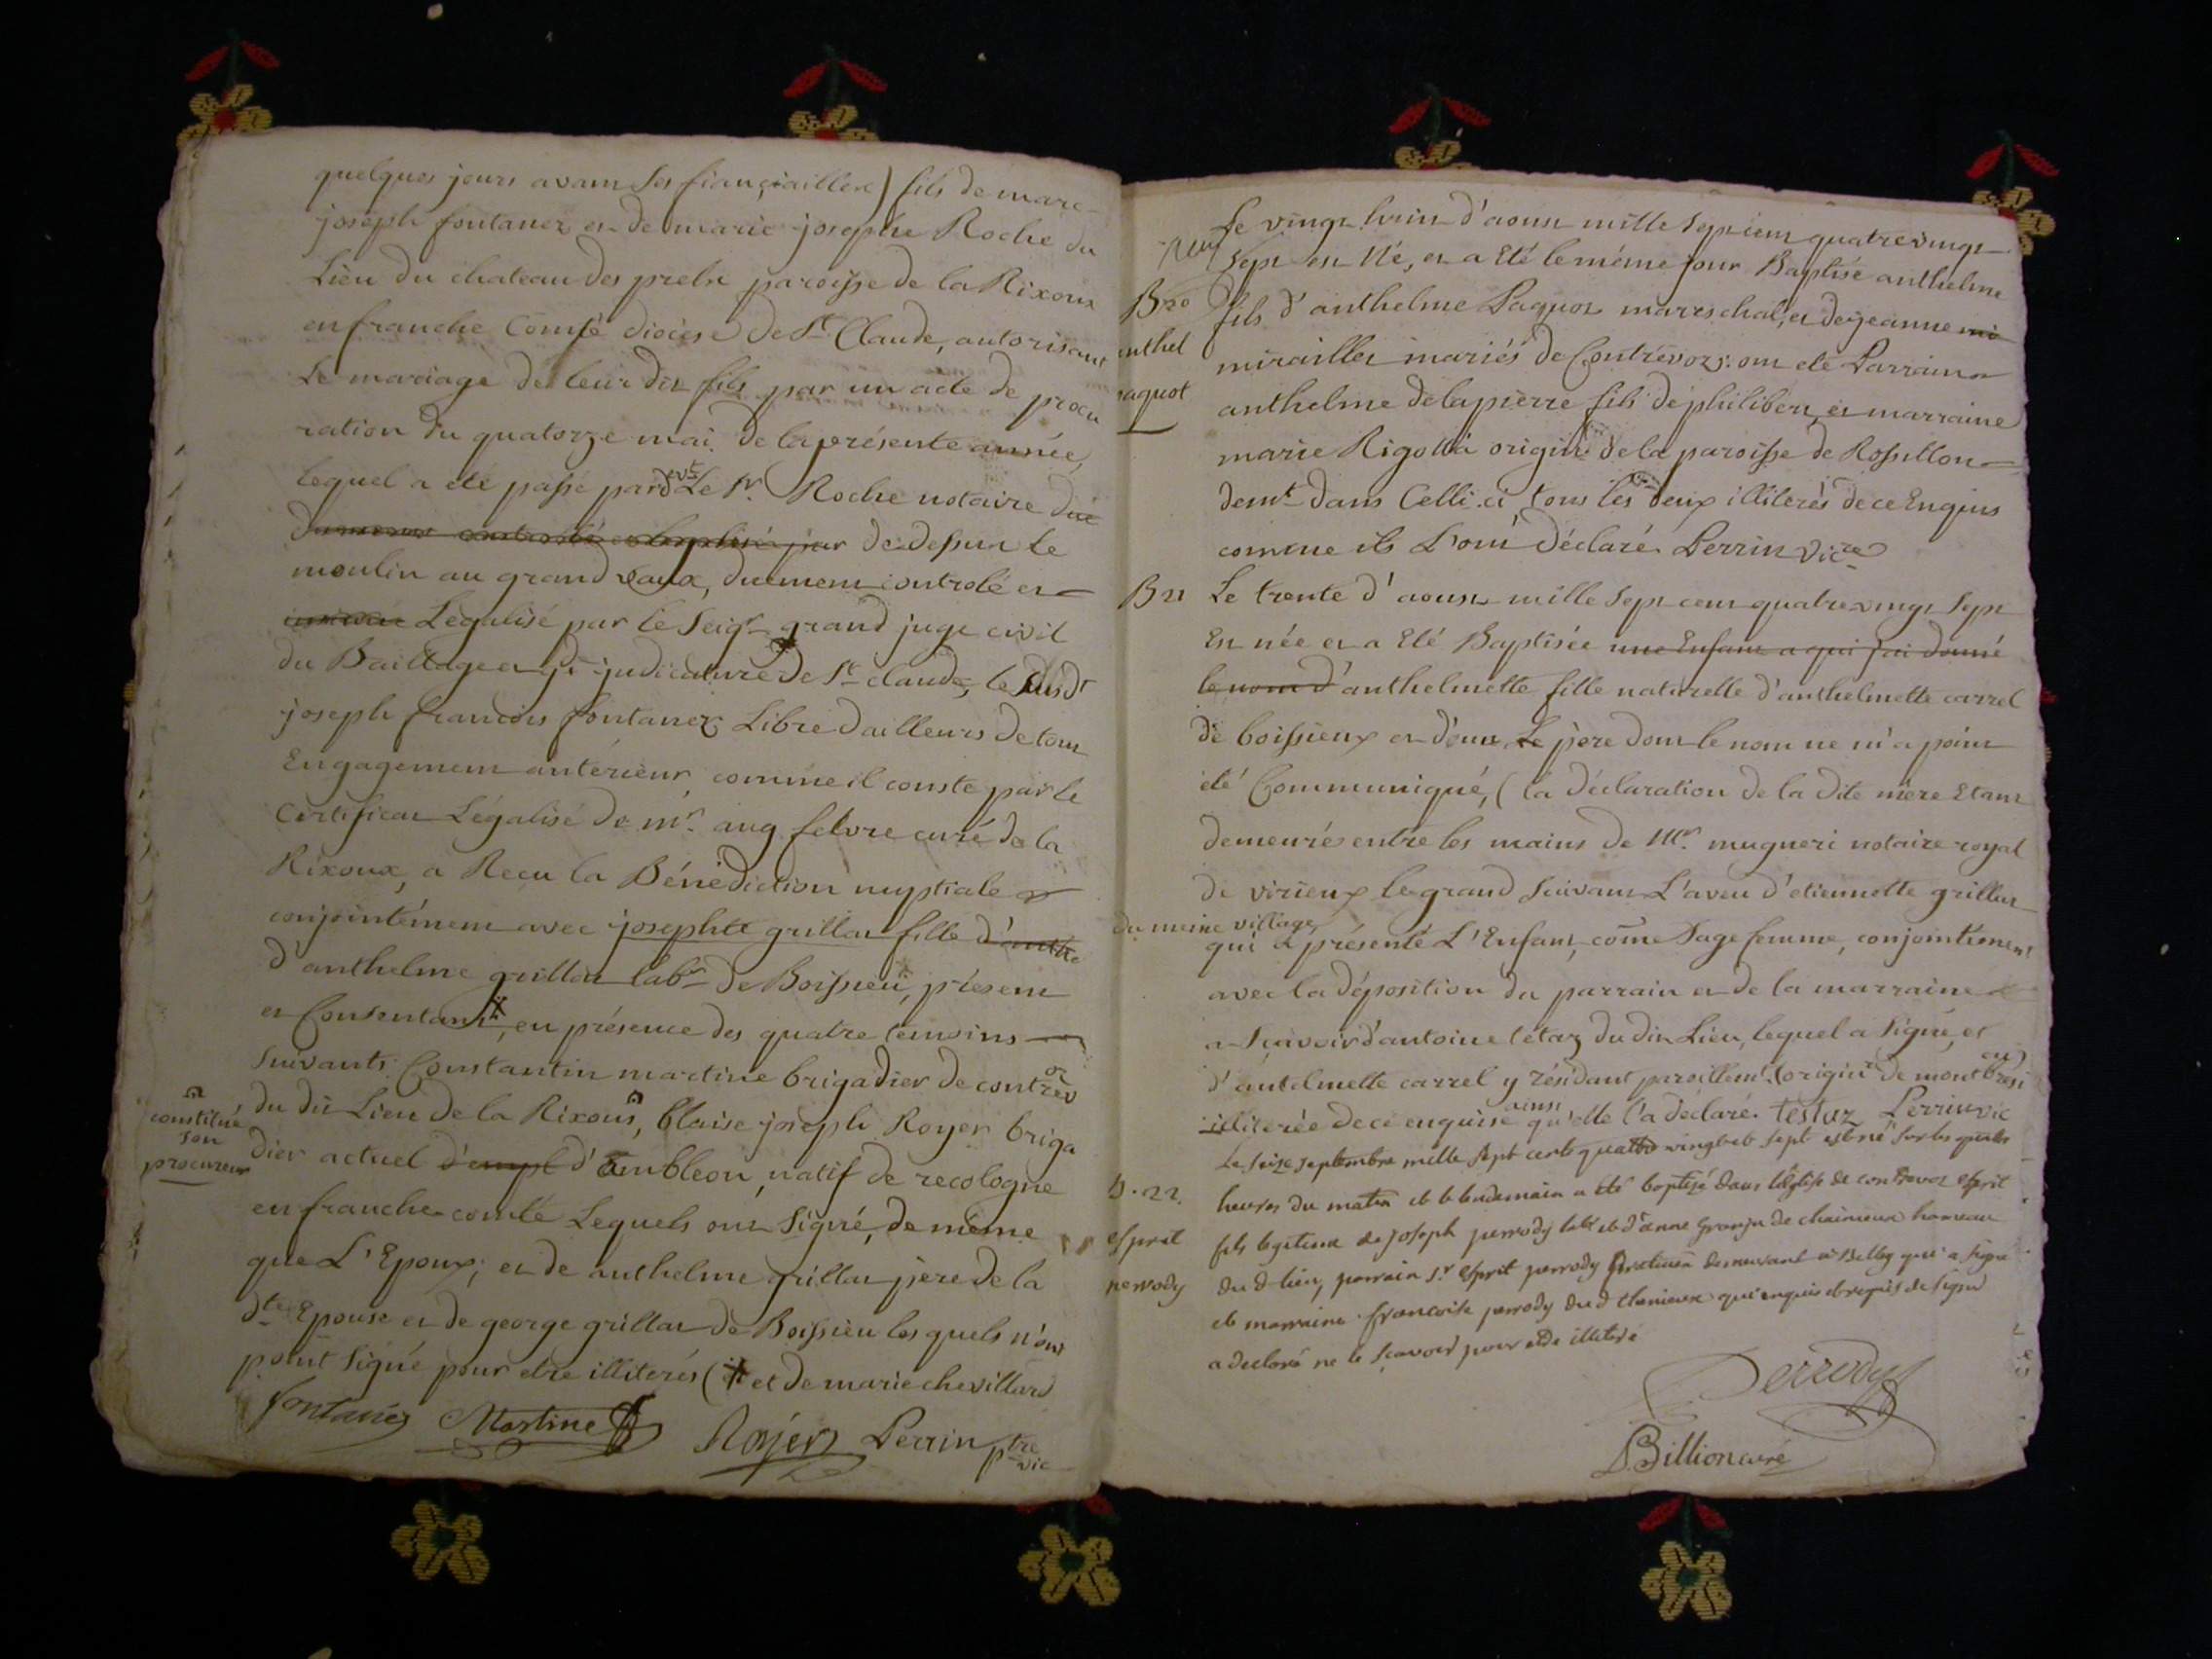 quelques jours avant ses fiançiailles) fils de marc
joseph fontanez et de marie josephe Roche du
Lieu du chateau des prels paroisse de la Rixoux
en franche Comté diocèse de St Claude, autorisant
Le mariage de leur dit fils par un acte de procu
ration du quatorze mai de la présente année,
lequel a eté passé pardevt Le Sr Roche notaire
de dessus le
moulin au grand vaux, duement controlé et
Légalisé par le Seigr grand juge civil
du Baillage et judicature de St claude, le susdt
joseph francois fontanez Libre d'ailleurs de tout
Engagement antérieur, comme il conste par le
Certificat Légalisé de mr aug febvre curé de la
Rixoux, a Recu la Bénédiction nuptiale
conjointément avec josephte grillat fille
d'anthelme grillat labr de Boissieu, présent
et Consentant, en présence des quatre témoins
Suivants Constantin martine brigadier de contrevoz
constitué
son
procureur
du dit Lieu de la Rixoux, blaise joseph Royer briga
dier actuel d'ambleon, natif de recologne
en franche comté Lequels ont Signé, de même
que L'Epoux; et de anthelme grillat père de la
dte Epouse et de george grillat de Boissieu les quels n'ont
point Signé pour etre illiterés ( et de marie chevillard
fontanez Martine Royer Perrin ptre vic
Le vingt huit d'aoust mille Sept cent quatre vingt
Sept est Né, et a Eté le même jour Baptisé anthelme
B 20
anthel
paquot
fils d'anthelme Paquot mareschal, et de jeanne
miraillet mariés de Contrevoz: ont eté Parrain
anthelme delapierre fils de philibert, et marraine
marie Rigollà origine de la paroisse de Rossillon
demt dans Celle ci tous les deux illiterés de ce Enquis
comme ils L'ont déclaré Perrin vicre
B 21
Le trente d'aoust mille Sept cent quatre vingt Sept
Est née et a Eté Baptisée une Enfant a qui j'ai donné
le nom d'anthelmette fille naturelle d'anthelmette carrel
de boissieux et d'un Père dont le nom ne m'a point
été Communiqué, (la déclaration de la dite mère Etant
demeurée entre les mains de Mr. mugneri notaire royal
de virieux le grand Suivant L'aveu d'etiennette grillat
du meme village
qui a présenté L'Enfant, come Sage femme, conjointement
avec la déposition du parrain et de la marraine
a Sçavoir d'antoine tétaz du dit Lieu, lequel a Signé, et
d'antelmette carrel y résidant pareillemt origin
illiterée de ce enquise ainsi qu'elle l'a déclaré. testaz Perrin vic
B. 22.
esprit
perrody
Le seize septembre mille sept cents quattre vingts et sept est né sur les quattre
heures du matin et le lendemain a été baptizé dans l'église de contrevoz esprit
fils legitime de joseph perrody labr et d'anne granju de chainieux hameau
du d lieu, parrain Sr esprit perrody demeurant a Belley qui a signé
et marraine francoise perrody du d chenieux qui enquis et requis de signer
a declaré ne le sçavoir pour etre illitere
Perrody
Billion curé